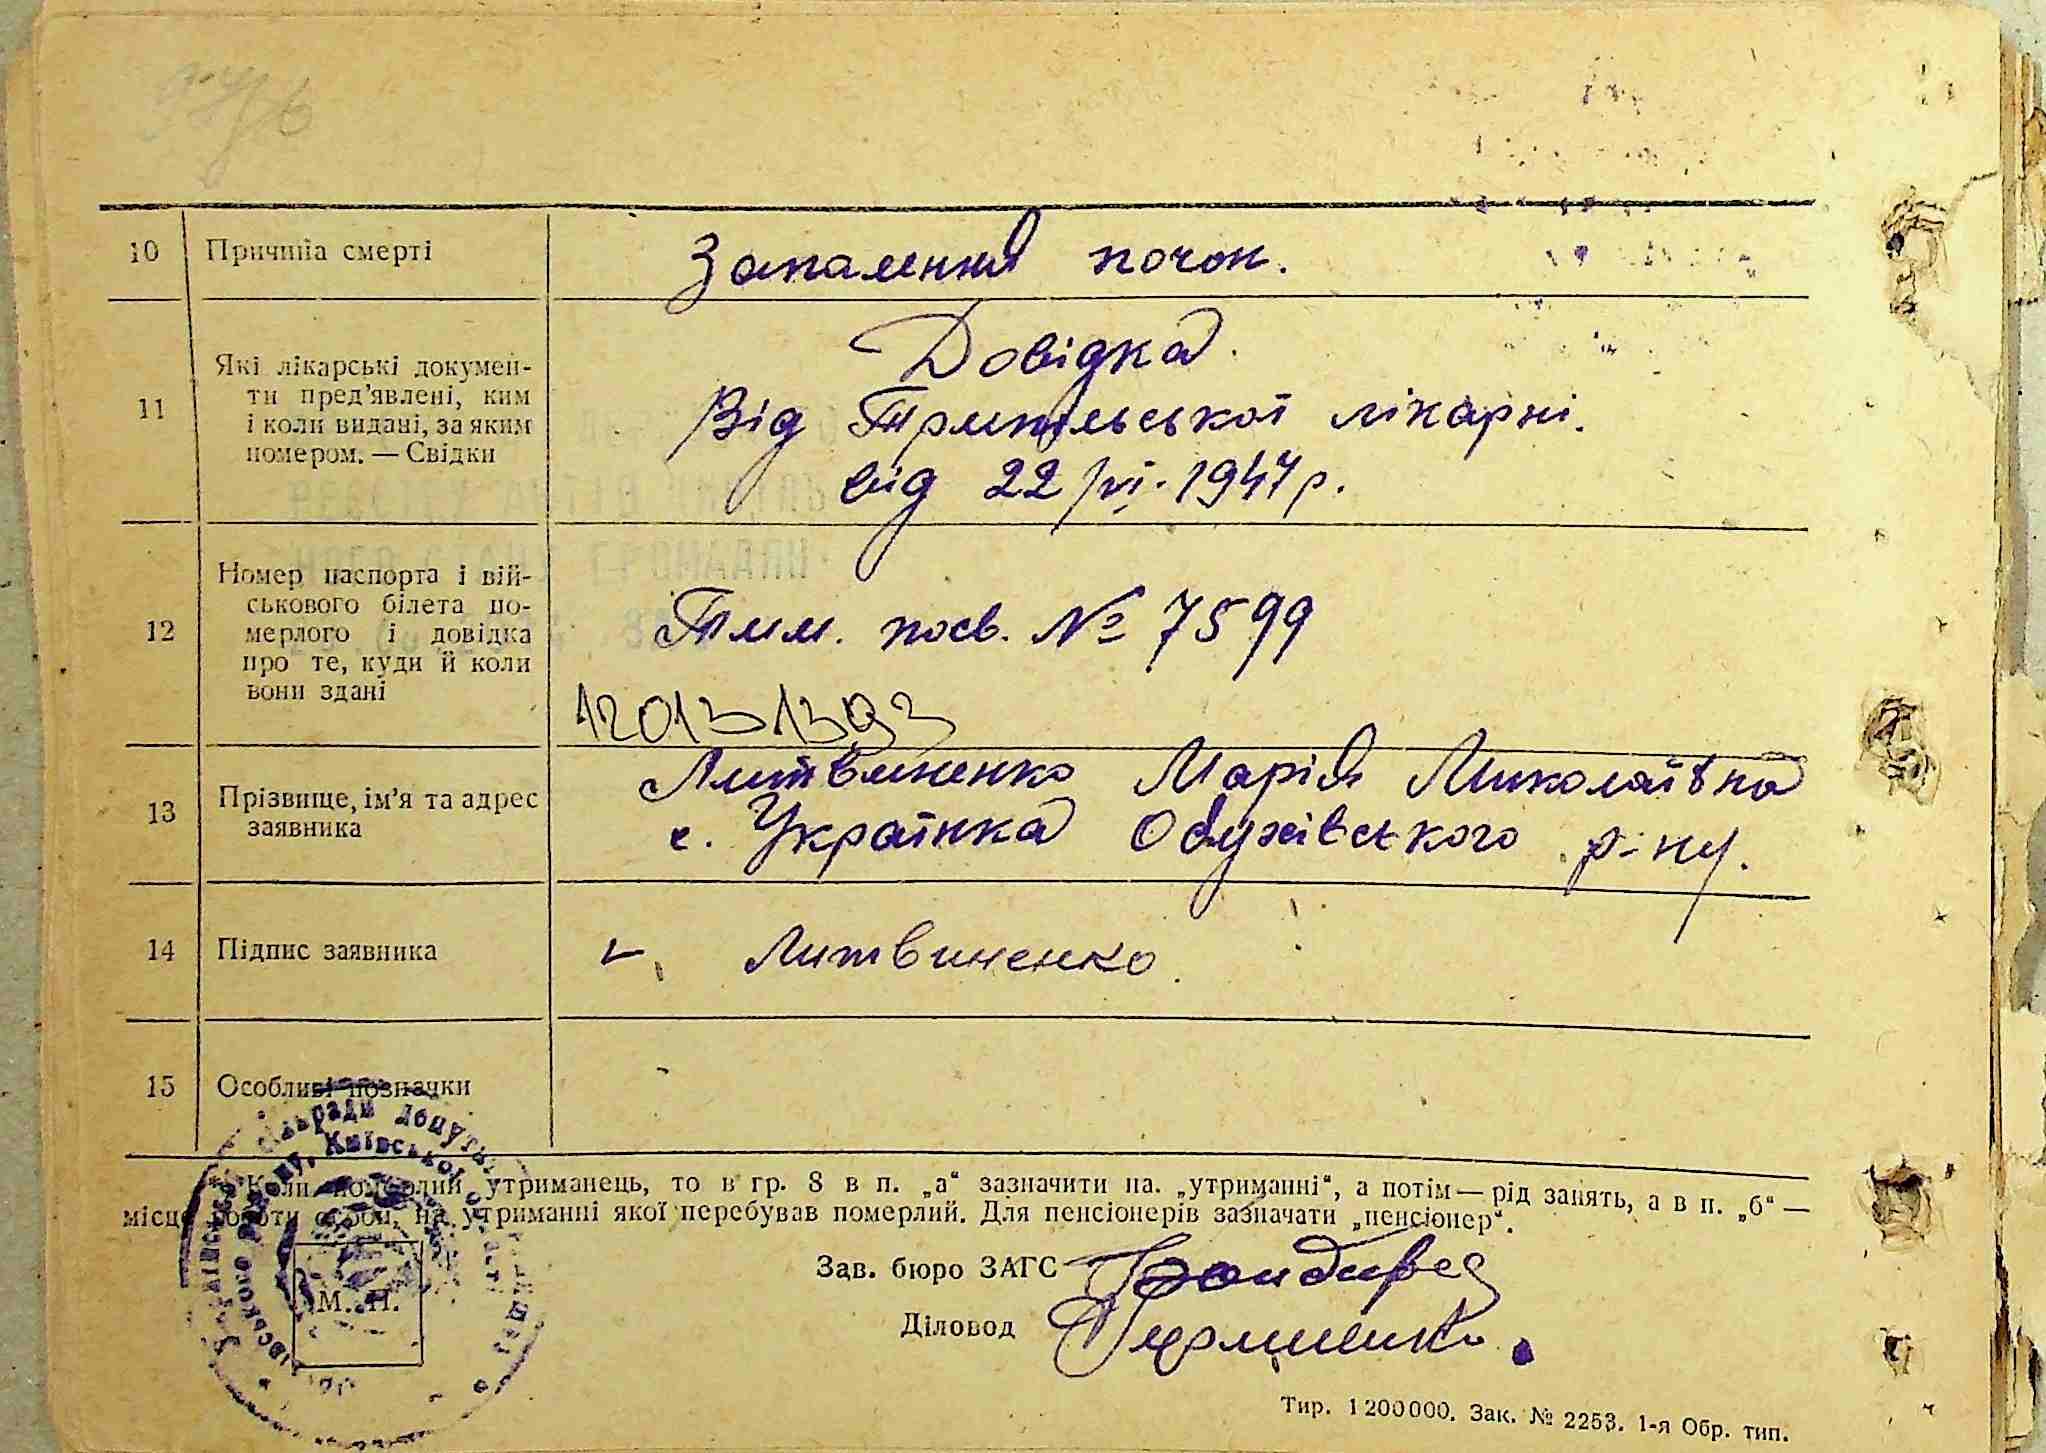 10 Причина смерті Запалення почок.
11 Які лікарські докумен-
ти пред'явлені, ким
і коли видані, за яким
номером. — Свідки
Довідка
Від Трипільської лікарні.
від 22/VI-1947 р.
12 Номер паспорта і вій-
ськового білета по-
мерлого і довідка
про те, куди й коли
вони здані
Тим. посв. № 7599
12013 1393
13 Прізвище, ім'я та адрес
заявника
Литвиненко Марія Миколаївна
с. Українка Обухівського р-ну.
14 Підпис заявника Литвиненко
15 Особливі позначки
* Коли померлий утриманець, то в гр. 8 в п. „а“ зазначити на. „утриманні“, а потім — рід занять, а в п. „б“ —
місце роботи особи, на утриманні якої перебував померлий. Для пенсіонерів зазначати „пенсіонер“.
Зав. бюро ЗАГС
Діловод
М. П.
сільради депутатів
району, Київської області
Тир. 1200000. Зак. № 2253. 1-я Обр. тип.